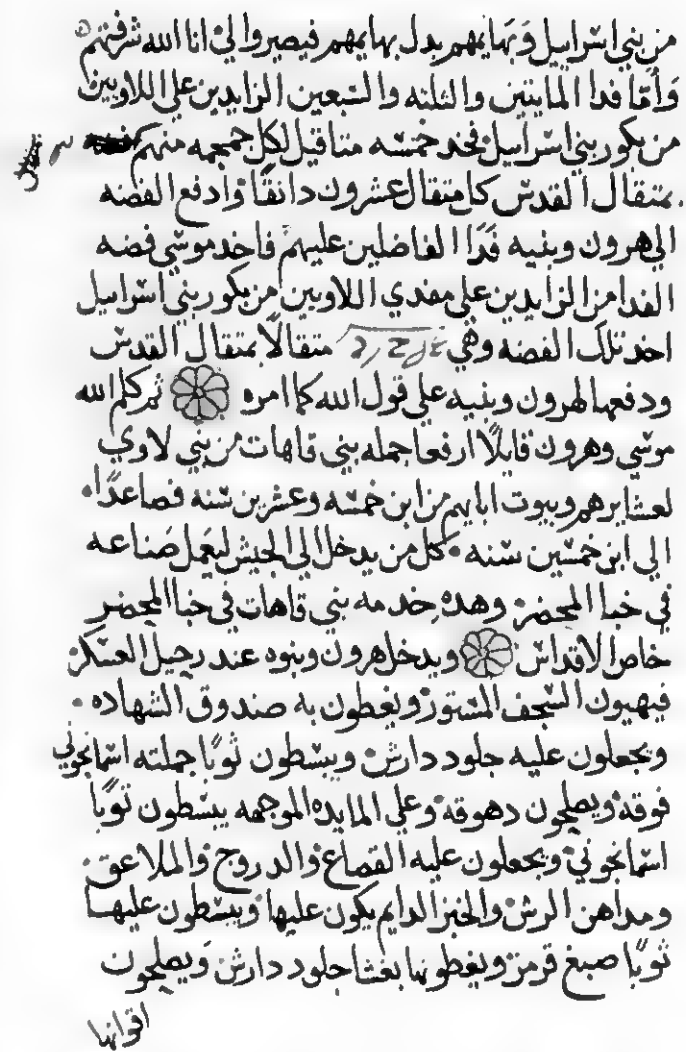 من بني اسراييل وبهايمهم بدل بهايمهم فيصيروا لي انا الله شرفتهم
وأما فدا المايتين والثلثه والسبعين الزايدين علي اللاويين
من بكور بني اسراييل فخد خمسه متاقيل لكل جمجمه منهم
بمتقال القدس كل متقال عشرون دانقًا وادفع الفضه
الي هرون وبنيه فدا الفاضلين عليهم فاخد موسي فضه
الفدا من الزايدين علي مفدي اللاويين من بكور بني اسراييل
اخد تلك الفضه وهي متقالًا بمتقال القدس
ودفعها لهرون وبنيه علي قول الله كما امره ثم كلم الله
موسي وهرون قايلًا ارفعا جمله بني قاهات من بني لاوي
لعشايرهم وبيوت ابايهم من ابن خمسه وعشرين سنه فصاعدًا
الي ابن خمسين سنه كل من يدخل الي الجيش ليعمل صناعه
في خبا المحضر وهده خدمه بني قاهات في خبا المحضر
خاص الاقداس ويدخل هرون وبنوه عند رحيل العسكر
فيهيون السجف المستور ويغطون به صندوق الشهاده
ويجعلون عليه جلود دارش ويبسطون ثوبًا جملته اسمانجوني
فوقه ويصلحون دهوقه وعلي المايده الموجهه يبسطون توبًا
اسمانجوني ويجعلون عليه القصاع والدروج والملاعق
ومداهن الرش والخبز الدايم يكون عليها ويبسطون عليها
ثوبًا صبغ قرمز ويغطونها بغشا جلود دارش ويصلحون